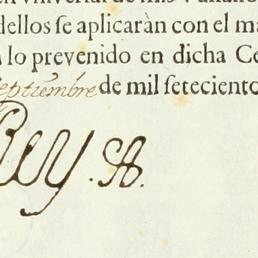 dellos se aplicaràn con el ma
lo prevenido en dicha Ce
eptiembre de mil seteciento
Rey